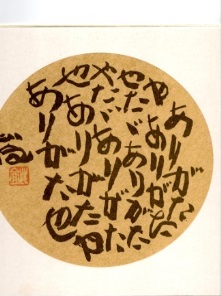 ありがた
やありがた
やたゞありがた
やたゞありがた
や
也ありがた
ありがた也